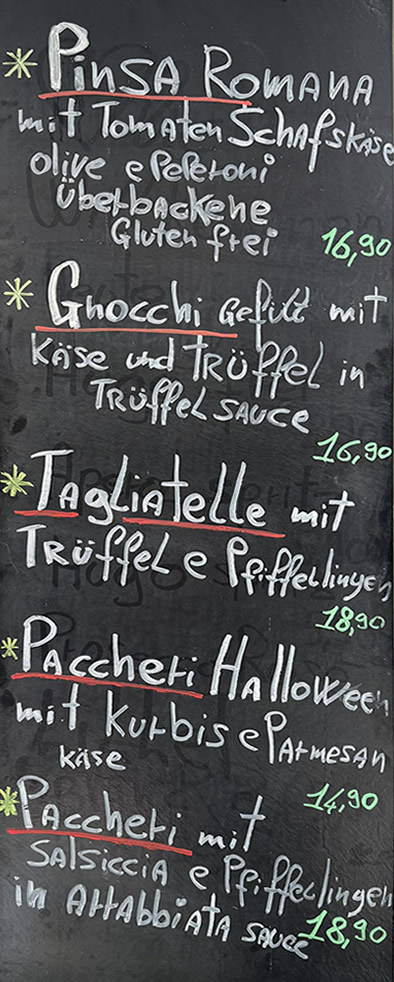 * Pinsa Romana
mit Tomaten Schafskäse
olive e Peperoni
Überbackene
Gluten frei 16,90
* Gnocchi Gefüllt mit
Käse und Trüffel in
Trüffel sauce
16,90
* Tagliatelle mit
Trüffel e Pfifferlingen
18,90
* Paccheri Halloween
mit Kurbis e Parmesan
käse
14,90
* Paccheri mit
Salsiccia e Pfifferlingen
in Arrabbiata sauce 18,90